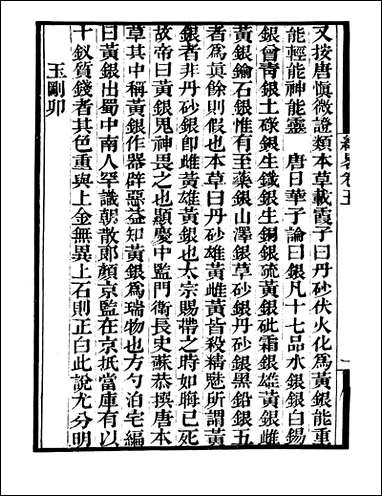 又按唐慎微證類本草載霞子曰丹砂伏火化為黃銀能重
能輕能神能靈　唐日華子論曰銀凡十七品水銀銀白錫
銀曾青銀土碌銀生鐵銀生銅銀硫黃銀砒霜銀雄黃銀雌
黃銀鍮石銀惟有至藥銀山澤銀草砂銀丹砂銀黑鉛銀五
者為真餘則假也本草曰丹砂雄黃雌黃皆殺精魅所謂黃
銀者非丹砂銀卽雌黃雄黃銀也太宗賜帶之時如晦已死
故帝曰黃銀鬼神畏之也顯慶中監門衛長史蘇恭撰唐本
草其中稱黃銀作器辟惡益知黃銀為瑞物也方勺泊宅編
曰黃銀出蜀中南人罕識朝散郎顏京監在京抵當庫有以
十釵質錢者其色重與上金無異上石則正白此說尤分明
玉剛卯
卷五